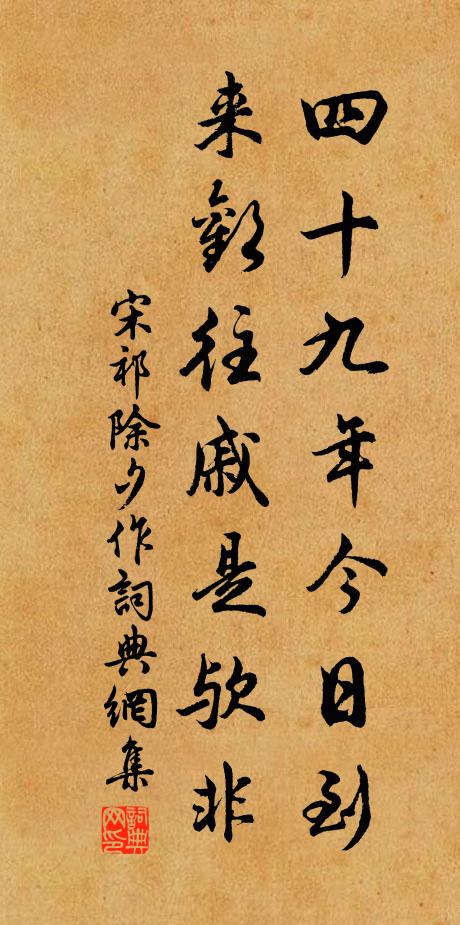 四十九年今日到
来歡往戚是欤非
宋祁除夕作詞典網集
詞典网印